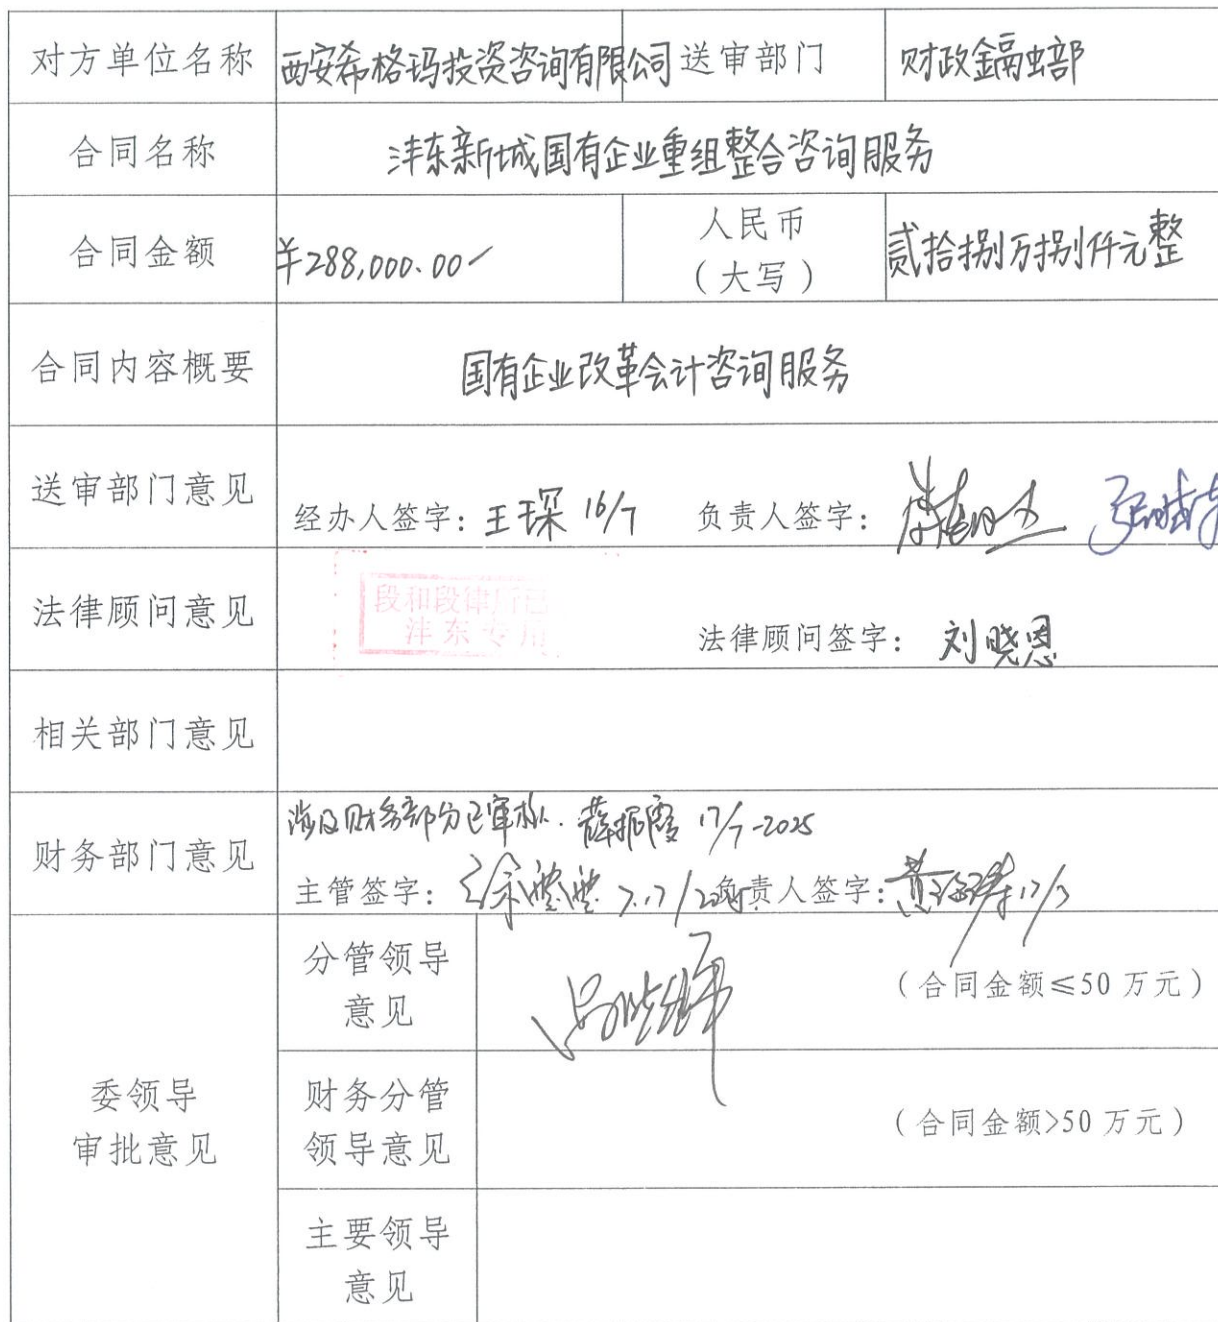 对方单位名称 西安希格玛投资咨询有限公司 送审部门 财政金融部
合同名称 沣东新城国有企业重组整合咨询服务
合同金额 ¥288,000.00 人民币
(大写) 贰拾捌万捌仟元整
合同内容概要 国有企业改革会计咨询服务
送审部门意见 经办人签字: 王琛 16/7 负责人签字:
法律顾问意见 段和段律所已
沣东专用
法律顾问签字: 刘晓恩
相关部门意见
财务部门意见 涉及财务部分已审核. 薛振霞 17/7-2025
主管签字: 徐 7.17/2025 负责人签字: 黄
委领导
审批意见
分管领导
意见
(合同金额≤50万元)
财务分管
领导意见
(合同金额>50万元)
主要领导
意见